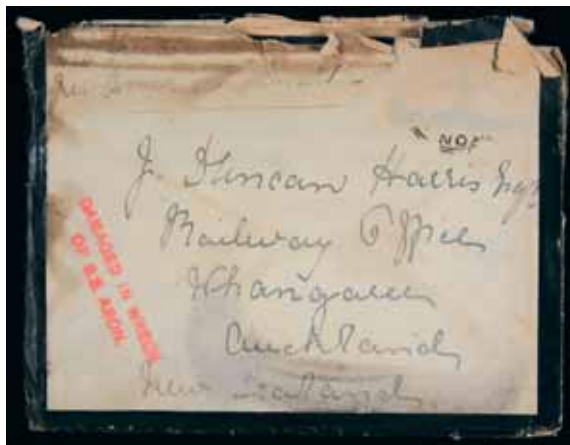 NOF
J. Duncan Harris Esq
Railway Offices
Whangarei
Auckland
New Zealand
DAMAGED IN WRECK
OF S.S. ARON.